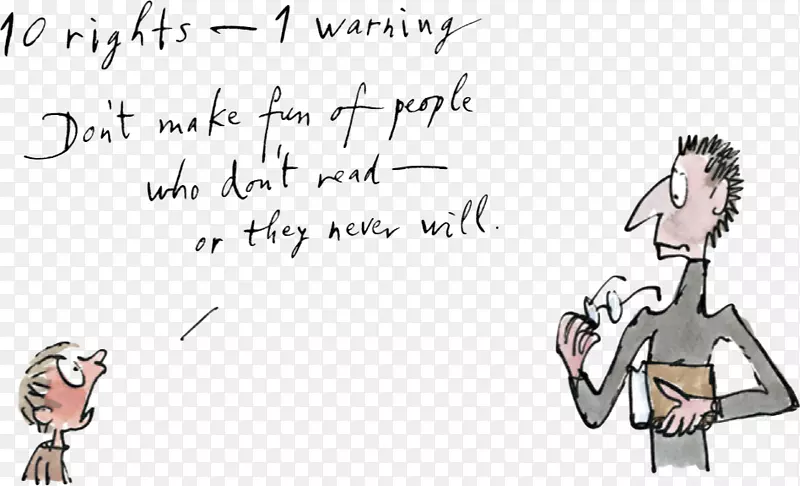 10 rights – 1 warning
Don't make fun of people
who don't read –
or they never will.